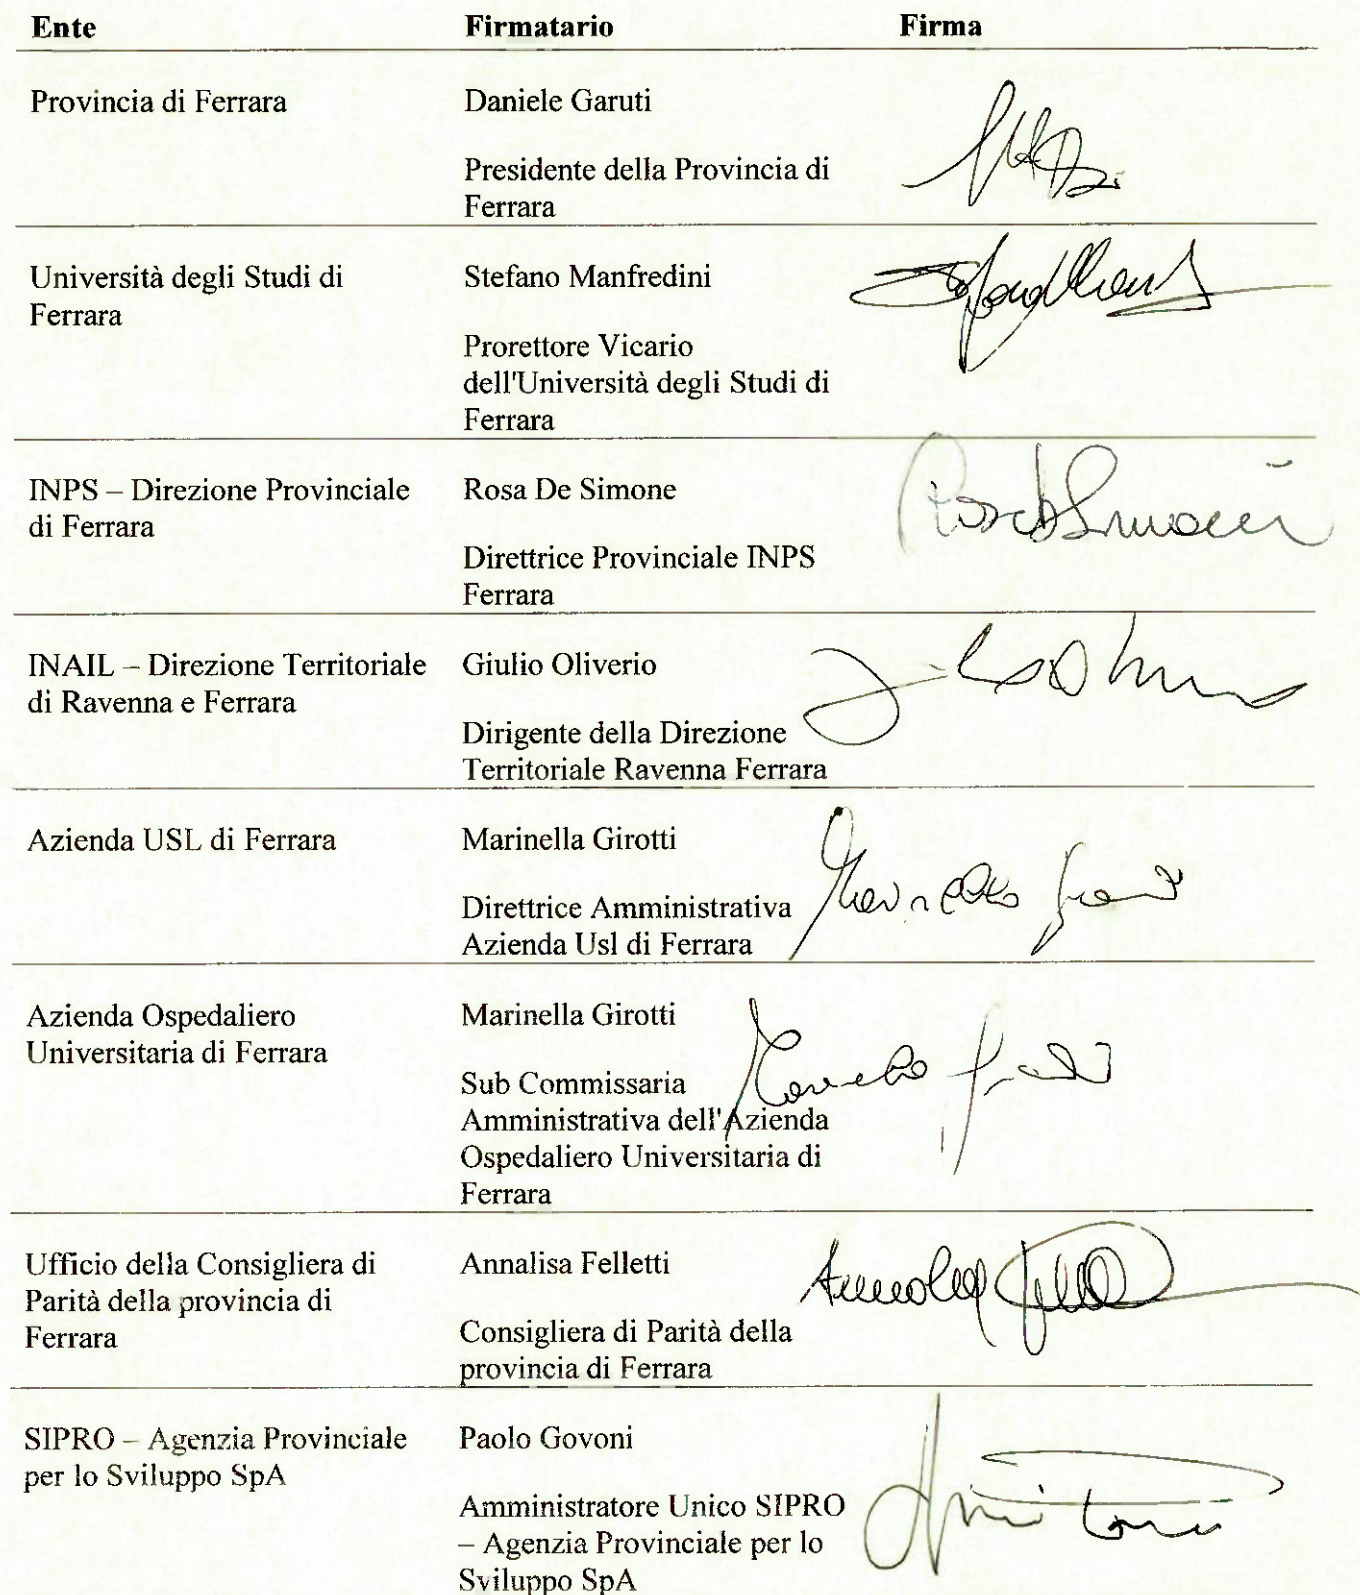 Ente Firmatario Firma
Provincia di Ferrara Daniele Garuti
Presidente della Provincia di
Ferrara
Università degli Studi di Stefano Manfredini
Ferrara
Prorettore Vicario
dell'Università degli Studi di
Ferrara
INPS – Direzione Provinciale Rosa De Simone
di Ferrara
Direttrice Provinciale INPS
Ferrara
INAIL – Direzione Territoriale Giulio Oliverio
di Ravenna e Ferrara
Dirigente della Direzione
Territoriale Ravenna Ferrara
Azienda USL di Ferrara Marinella Girotti
Direttrice Amministrativa
Azienda Usl di Ferrara
Azienda Ospedaliero Marinella Girotti
Universitaria di Ferrara
Sub Commissaria
Amministrativa dell'Azienda
Ospedaliero Universitaria di
Ferrara
Ufficio della Consigliera di Annalisa Felletti
Parità della provincia di
Ferrara
Consigliera di Parità della
provincia di Ferrara
SIPRO – Agenzia Provinciale Paolo Govoni
per lo Sviluppo SpA
Amministratore Unico SIPRO
– Agenzia Provinciale per lo
Sviluppo SpA